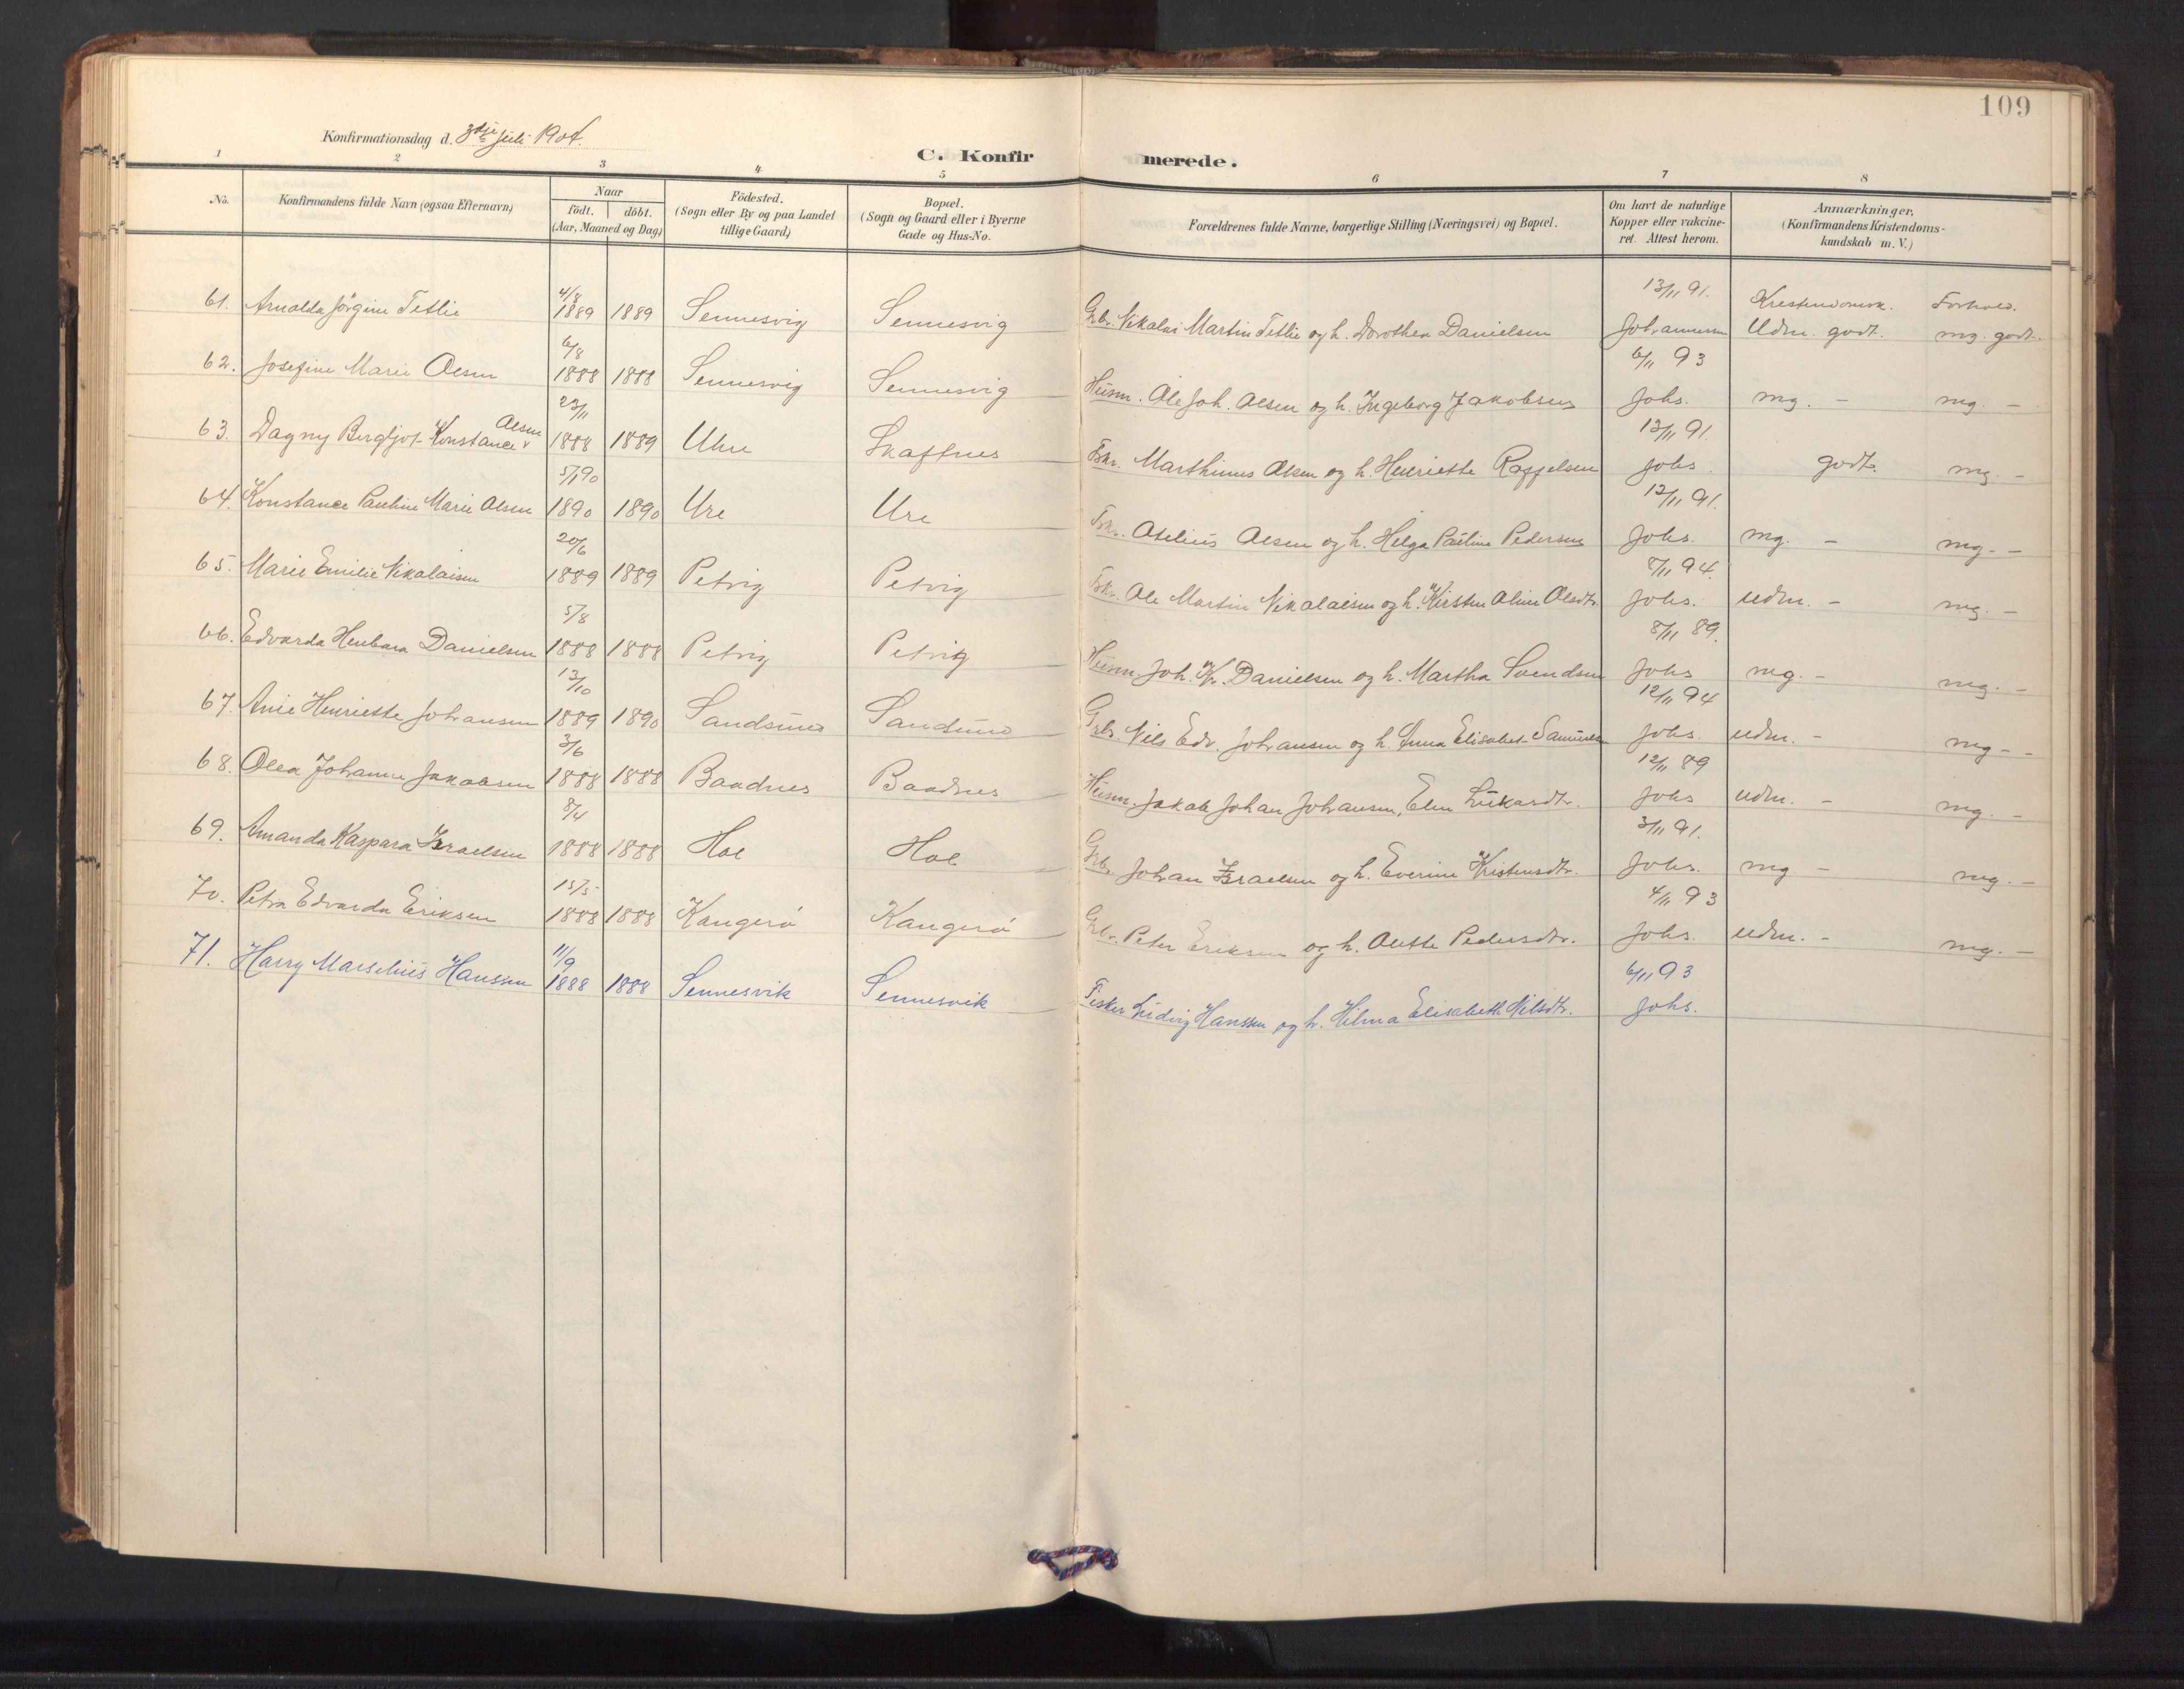 109
Konfirmationsdag d. 3die juli 1904.
C. Konfirmerede.
1 2 3 4 5 6 7 8
No. Konfirmandens fulde Navn (ogsaa Efternavn) Naar födt. döbt. (Aar, Maaned og Dag) Födested. (Sogn eller By og paa Landet tillige Gaard) Bopæl. (Sogn og Gaard eller i Byerne Gade og Hus-No. Forældrenes fulde Navne, borgerlige Stilling (Næringsvei) og Bopæl. Om havt de naturlige Kopper eller vakcineret. Attest herom. Anmærkninger. (Konfirmandens Kristendomskundskab m. V.)
Kristendomsk. Forhold.
61. Arnolda Jörgine Tetlie 4/8 1889 1889 Sennesvig Sennesvig Grbr. Nikolai Martin Tetlie og h. Dorothea Danielsen 13/11 91. Johannesen Udm. godt. mg. godt.
62. Josefine Marie Olsen 6/8 1888 1888 Sennesvig Sennesvig Husm. Ole Joh. Olsen og h. Ingeborg Jakobsen 6/11 93 Johs. mg. - mg. -
63. Dagny Bergljot Konstance Olsen 23/11 1888 1889 Uhre Skaftnes Fskr. Marthinus Olsen og h. Henriette Roffelsen 13/11 91. Johs. godt. mg. -
64. Konstance Pauline Marie Olsen 5/1 90 1890 1890 Ure Ure Fskr. Otelius Olsen og h. Helga Pauline Pedersen 12/11 91. Johs. mg. - mg. -
65. Marie Emilie Nikolaisen 20/6 1889 1889 Petvig Petvig Fskr. Ole Martin Nikolaisen og h. Kirsten Oline Olsdtr. 8/11 94. Johs. udm. - mg. -
66. Edvarda Henbara Danielsen 5/8 1888 1888 Petvig Petvig Husm. Joh. K. Danielsen og h. Martha Svendsen 8/11 89. Johs mg. - mg. -
67. Anie Henriette Johansen 13/10 1889 1890 Sandsund Sandsund Grbr. Nils Edv. Johansen og h. Anna Elisabet Samuels 12/11 94 Johs. udm. - mg. -
68. Olea Johanne Jakobsen 3/6 1888 1888 Baadnes Baadnes Husm. Jakob Johan Johansen, Elen Lukasdtr. 12/11 89 Johs udm. - mg. -
69. Amanda Kaspara Israelsen 8/4 1888 1888 Hol Hol Grbr. Johan Israelsen og h. Everine Kristensdtr. 3/11 91. Johs. mg - mg. -
70. Petra Edvarda Eriksen 15/5 1888 1888 Kangerö Kangerö Grbr. Peter Eriksen og h. Olette Pedersdtr. 4/11 93 Johs. udm. - mg. -
71. Harry Marselius Hanssen 11/9 1888 1888 Sennesvik Sennesvik Fisker Ludvig Hanssen og h. Hilma Elisabeth Nilsdtr. 6/11 93 Johs.